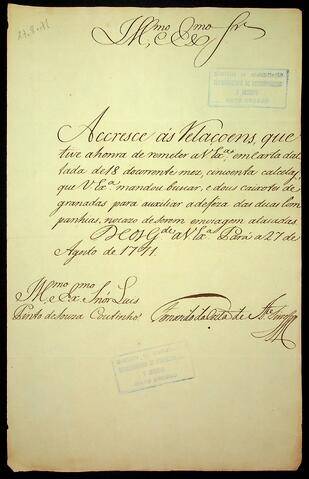 27.8.71
Il.mo e Ex.mo Snr
Accresce ás Relaçoens, que
tive ahonra de remeter a V Ex.ª em Carta da
tada de 18 do corrente mez, cincoenta
que V Ex.ª mandou buscar, e dous caixotes de
granadas para auxiliar a defeza das duas Com
panhias, no cazo de serem em viagem atacadas.
DEOS G.de a V Ex.ª Pará a 27 de
Agosto de 1771.
Il.mo e Ex.mo Snór Luis
Pinto de Souza Coutinho
Fernando da Costa de